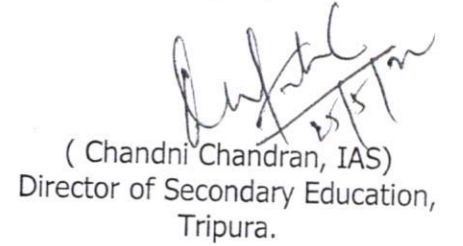 25/5/22
( Chandni Chandran, IAS)
Director of Secondary Education,
Tripura.